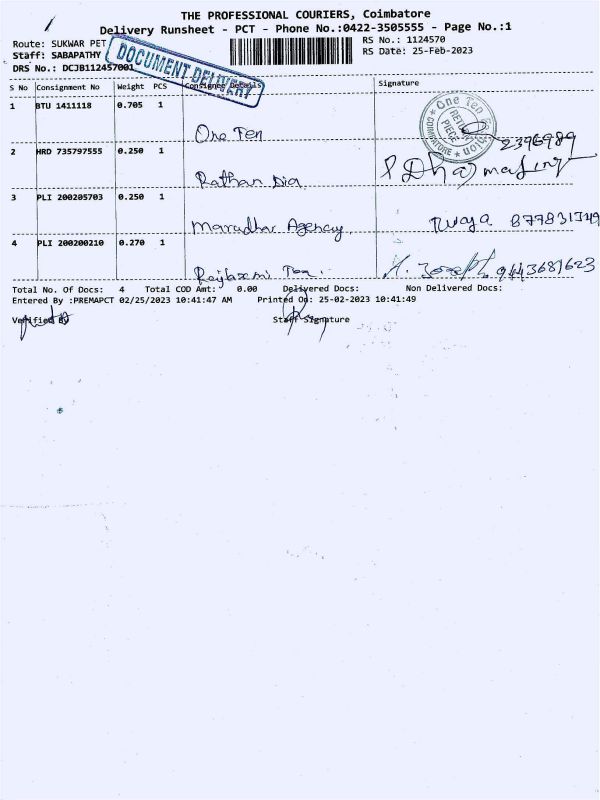 THE PROFESSIONAL COURIERS, Coimbatore
Delivery Runsheet - PCT - Phone No.:0422-3505555 - Page No.:1
Route: SUKWAR PET
RS No.: 1124570
Staff: SABAPATHY
RS Date: 25-Feb-2023
DRS No.: DCJB112457001
DOCUMENT DELIVERY
S No Consignment No Weight PCS Consignee Details Signature
1 BTU 1411118 0.705 1
One Ten
One Ten
COIMBATORE
2396989
2 HRD 735797555 0.250 1
Rathan Dia
3 PLI 200205703 0.250 1
Marudhar Agency
4 PLI 200200210 0.270 1
M. Joseph 9443681623
Total No. Of Docs: 4 Total COD Amt: 0.00 Delivered Docs: Non Delivered Docs:
Entered By :PREMAPCT 02/25/2023 10:41:47 AM Printed On: 25-02-2023 10:41:49
Verified By Staff Signature